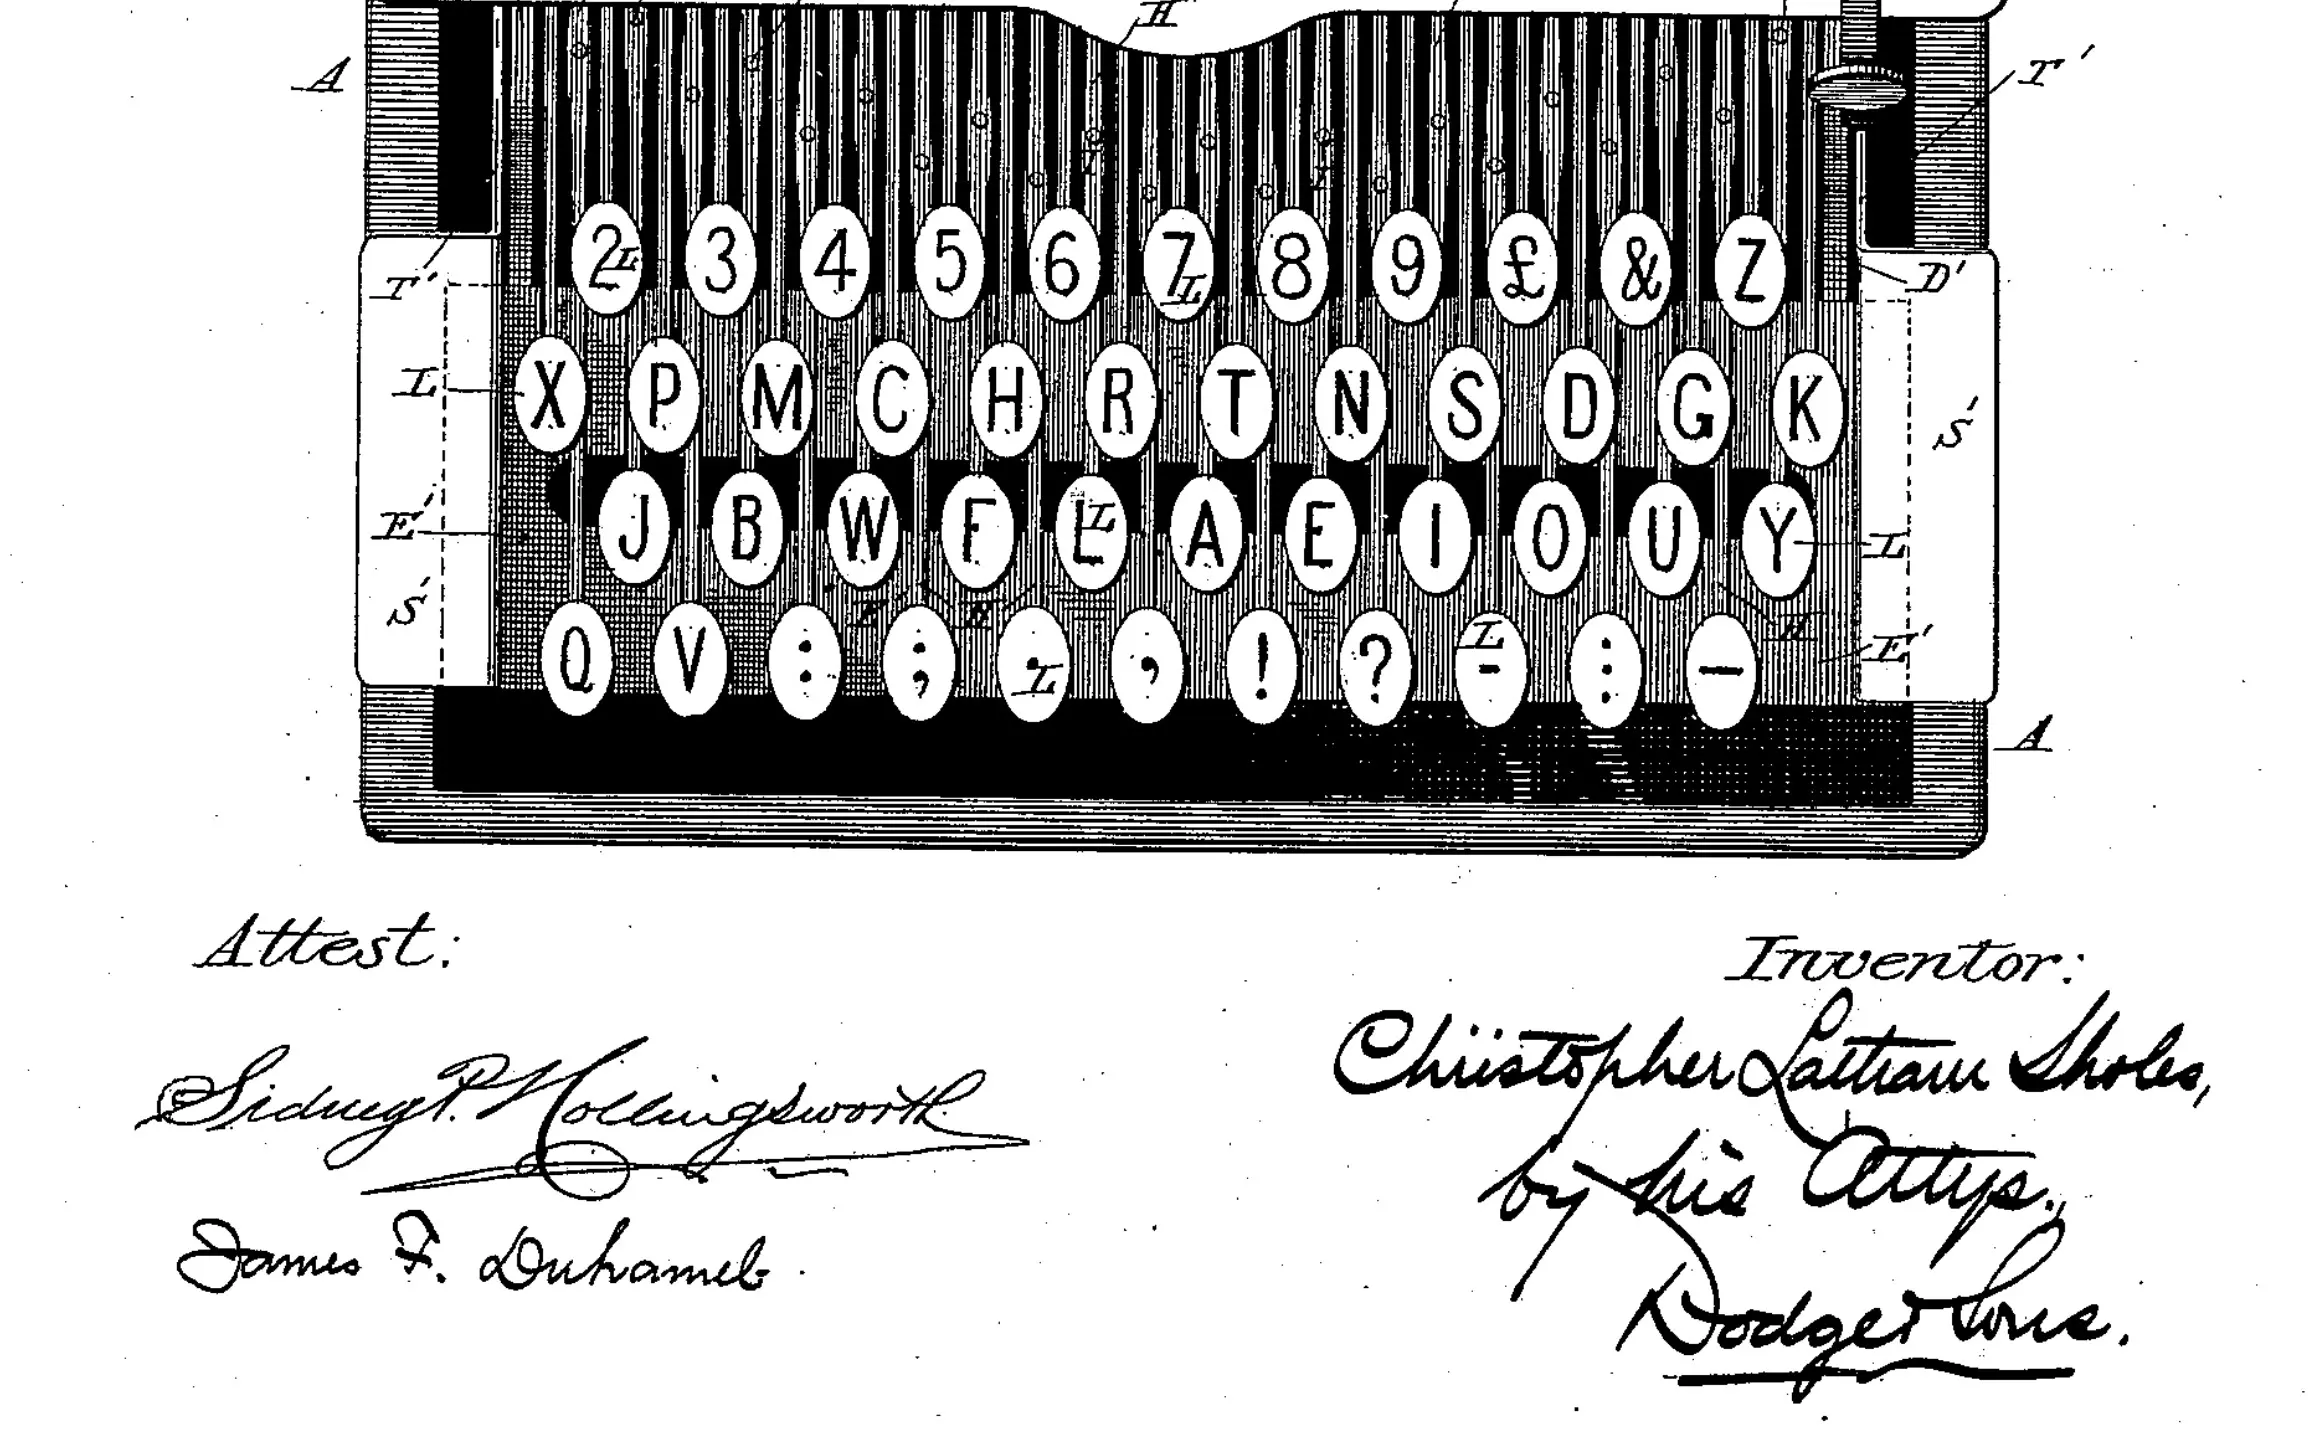 H
A
T'
2 3 4 5 6 7 8 9 £ & Z
L
L
T'
D'
X P M C H R T N S D G K
L
S'
J B W F L A E I O U Y
L
L
E'
S'
H
H
E'
Q V : ; . , ! ? - ⋮ —
L
L
A
Attest:
Inventor:
Sidney P. Hollingsworth
Christopher Latham Sholes,
by his Attys.,
James F. Duhamel.
Dodger & Sons.